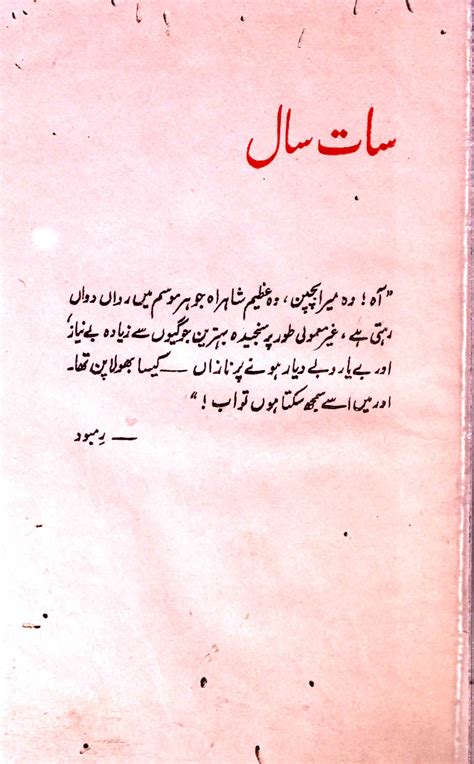 سات سال
"آہ! وہ میرا بچپن، وہ عظیم شاہراہ جو ہر موسم میں رواں دواں
رہتی ہے، غیر معمولی طور پر سنجیدہ بہترین جوگیوں سے زیادہ بے نیاز،
اور بے یار و بے دیار ہونے پر نازاں — کیسا بھولا پن تھا۔
اور میں اسے سمجھ سکتا ہوں تو اب!"
— رمبود